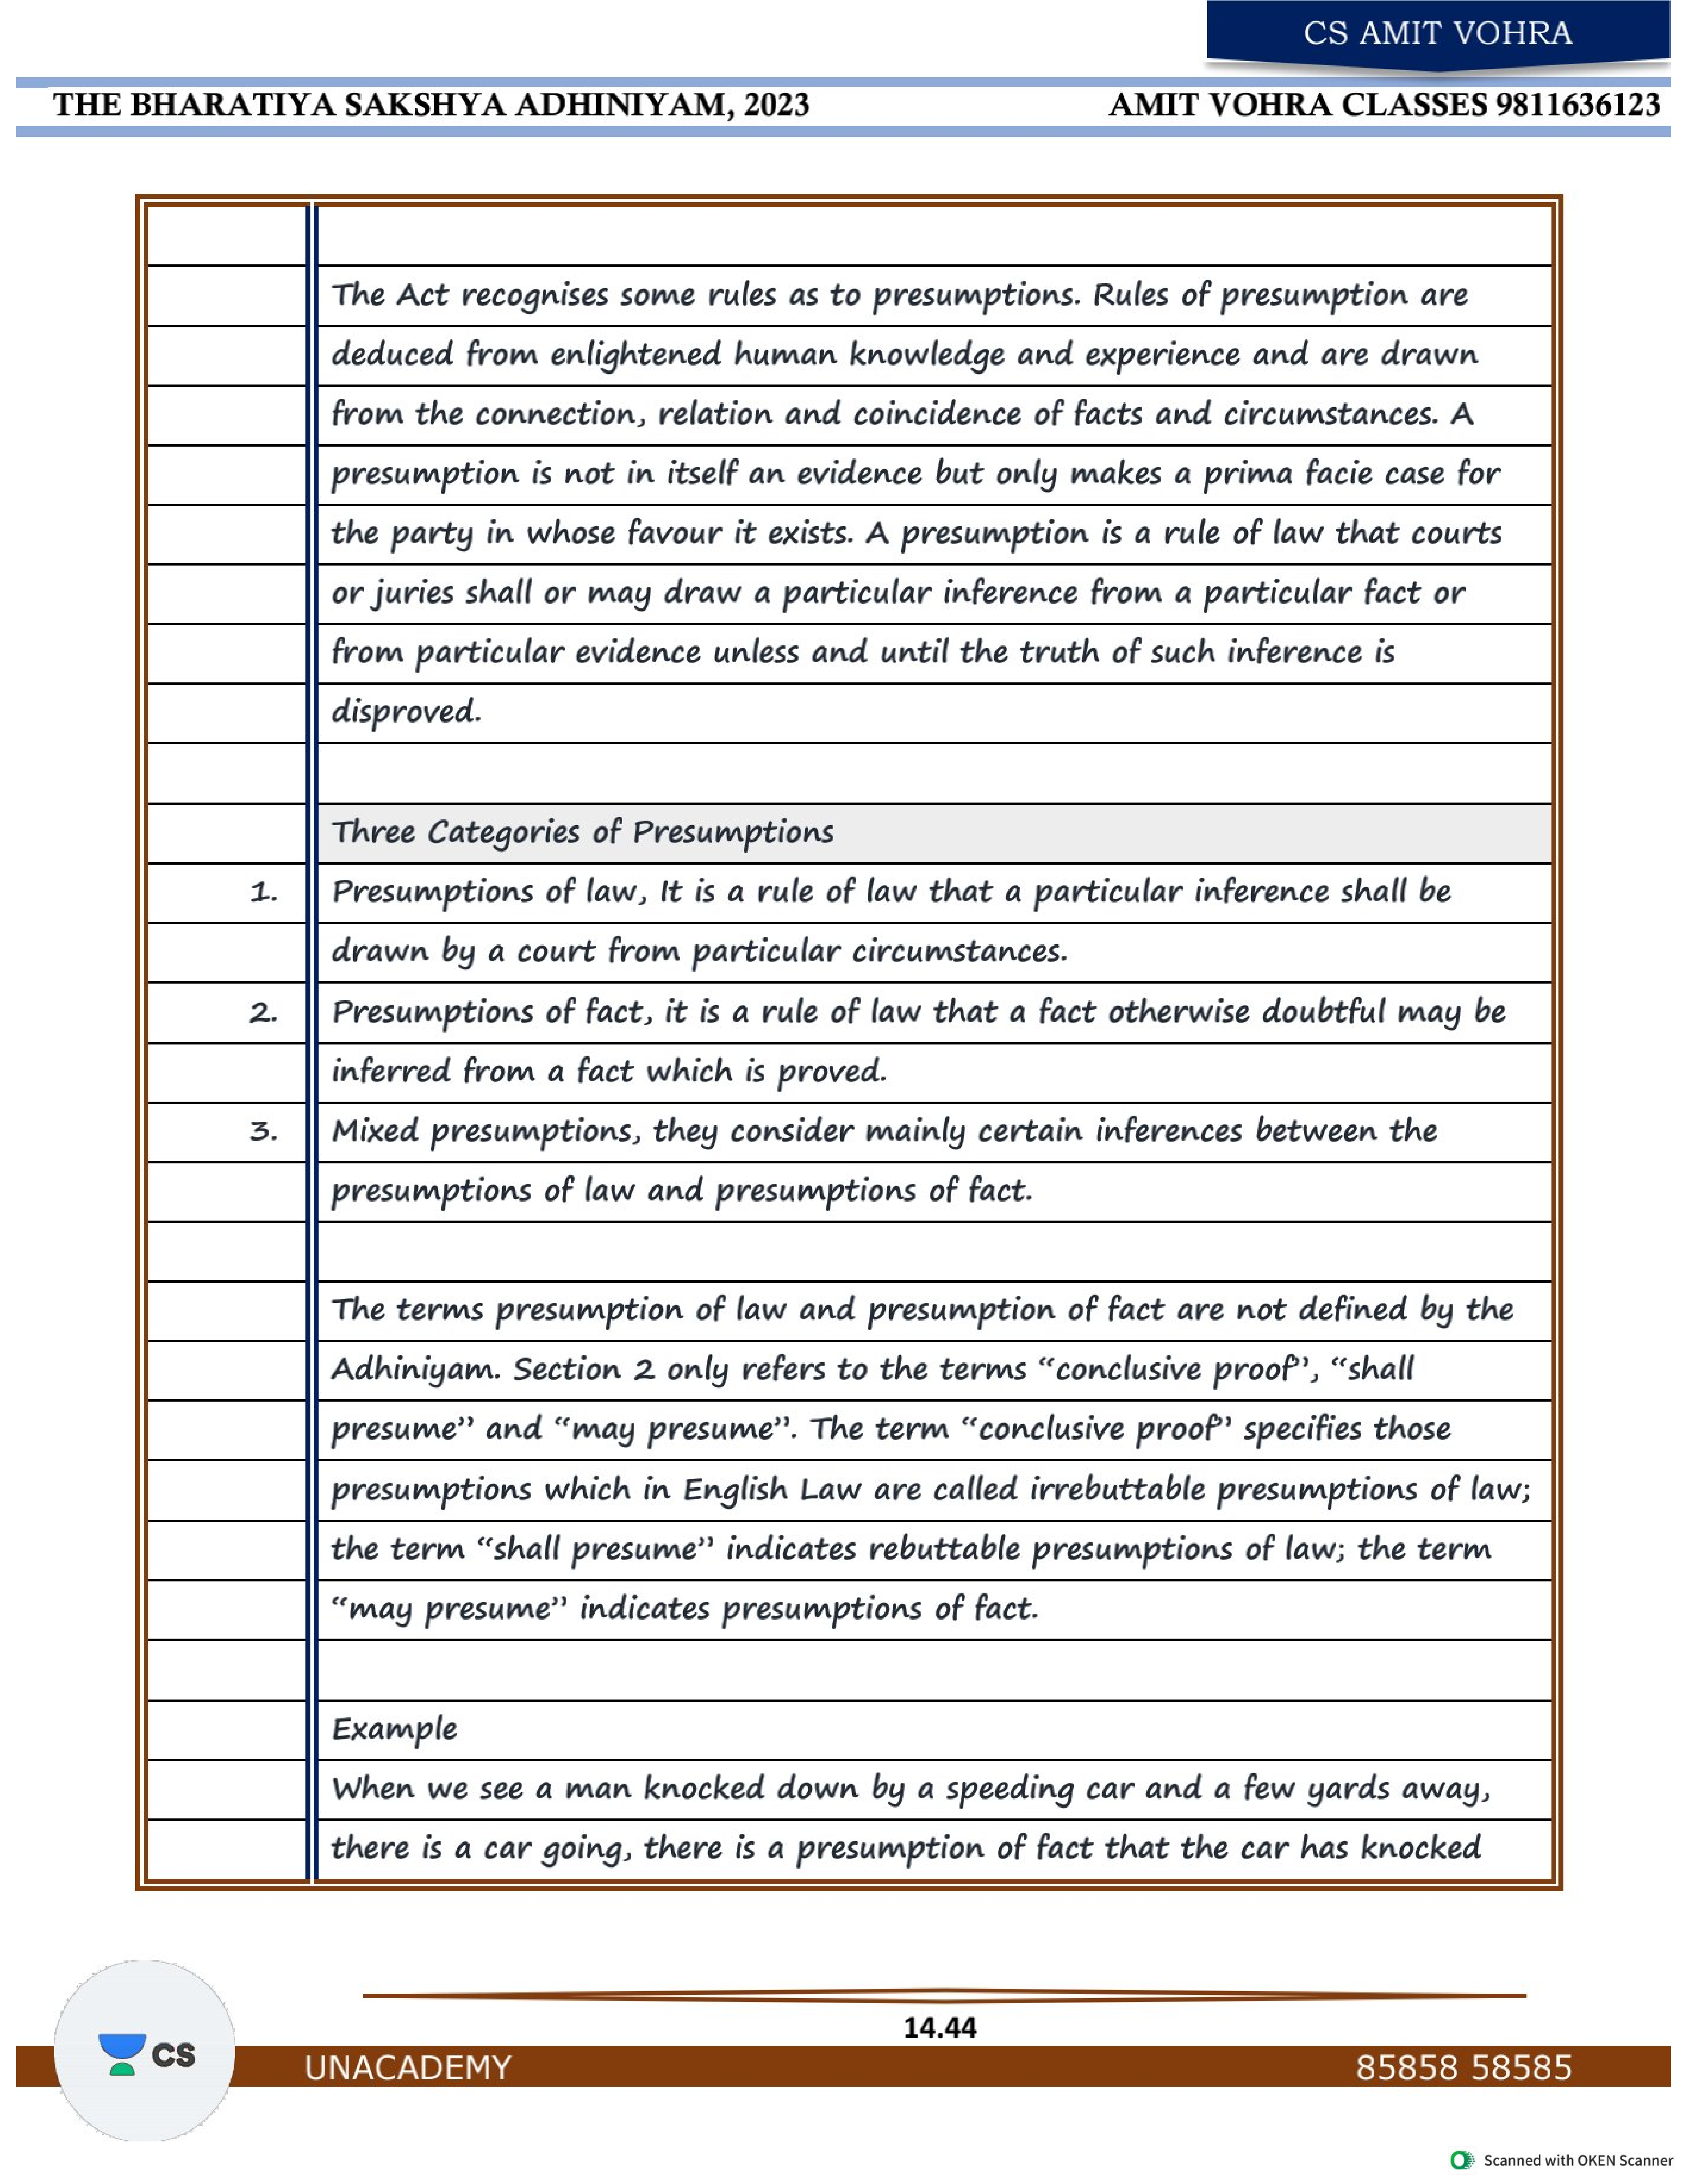 CS AMIT VOHRA
THE BHARATIYA SAKSHYA ADHINIYAM, 2023 AMIT VOHRA CLASSES 9811636123
The Act recognises some rules as to presumptions. Rules of presumption are
deduced from enlightened human knowledge and experience and are drawn
from the connection, relation and coincidence of facts and circumstances. A
presumption is not in itself an evidence but only makes a prima facie case for
the party in whose favour it exists. A presumption is a rule of law that courts
or juries shall or may draw a particular inference from a particular fact or
from particular evidence unless and until the truth of such inference is
disproved.
Three Categories of Presumptions
1. Presumptions of law, It is a rule of law that a particular inference shall be
drawn by a court from particular circumstances.
2. Presumptions of fact, it is a rule of law that a fact otherwise doubtful may be
inferred from a fact which is proved.
3. Mixed presumptions, they consider mainly certain inferences between the
presumptions of law and presumptions of fact.
The terms presumption of law and presumption of fact are not defined by the
Adhiniyam. Section 2 only refers to the terms “conclusive proof”, “shall
presume” and “may presume”. The term “conclusive proof” specifies those
presumptions which in English Law are called irrebuttable presumptions of law;
the term “shall presume” indicates rebuttable presumptions of law; the term
“may presume” indicates presumptions of fact.
Example
When we see a man knocked down by a speeding car and a few yards away,
there is a car going, there is a presumption of fact that the car has knocked
14.44
CS
UNACADEMY 85858 58585
Scanned with OKEN Scanner